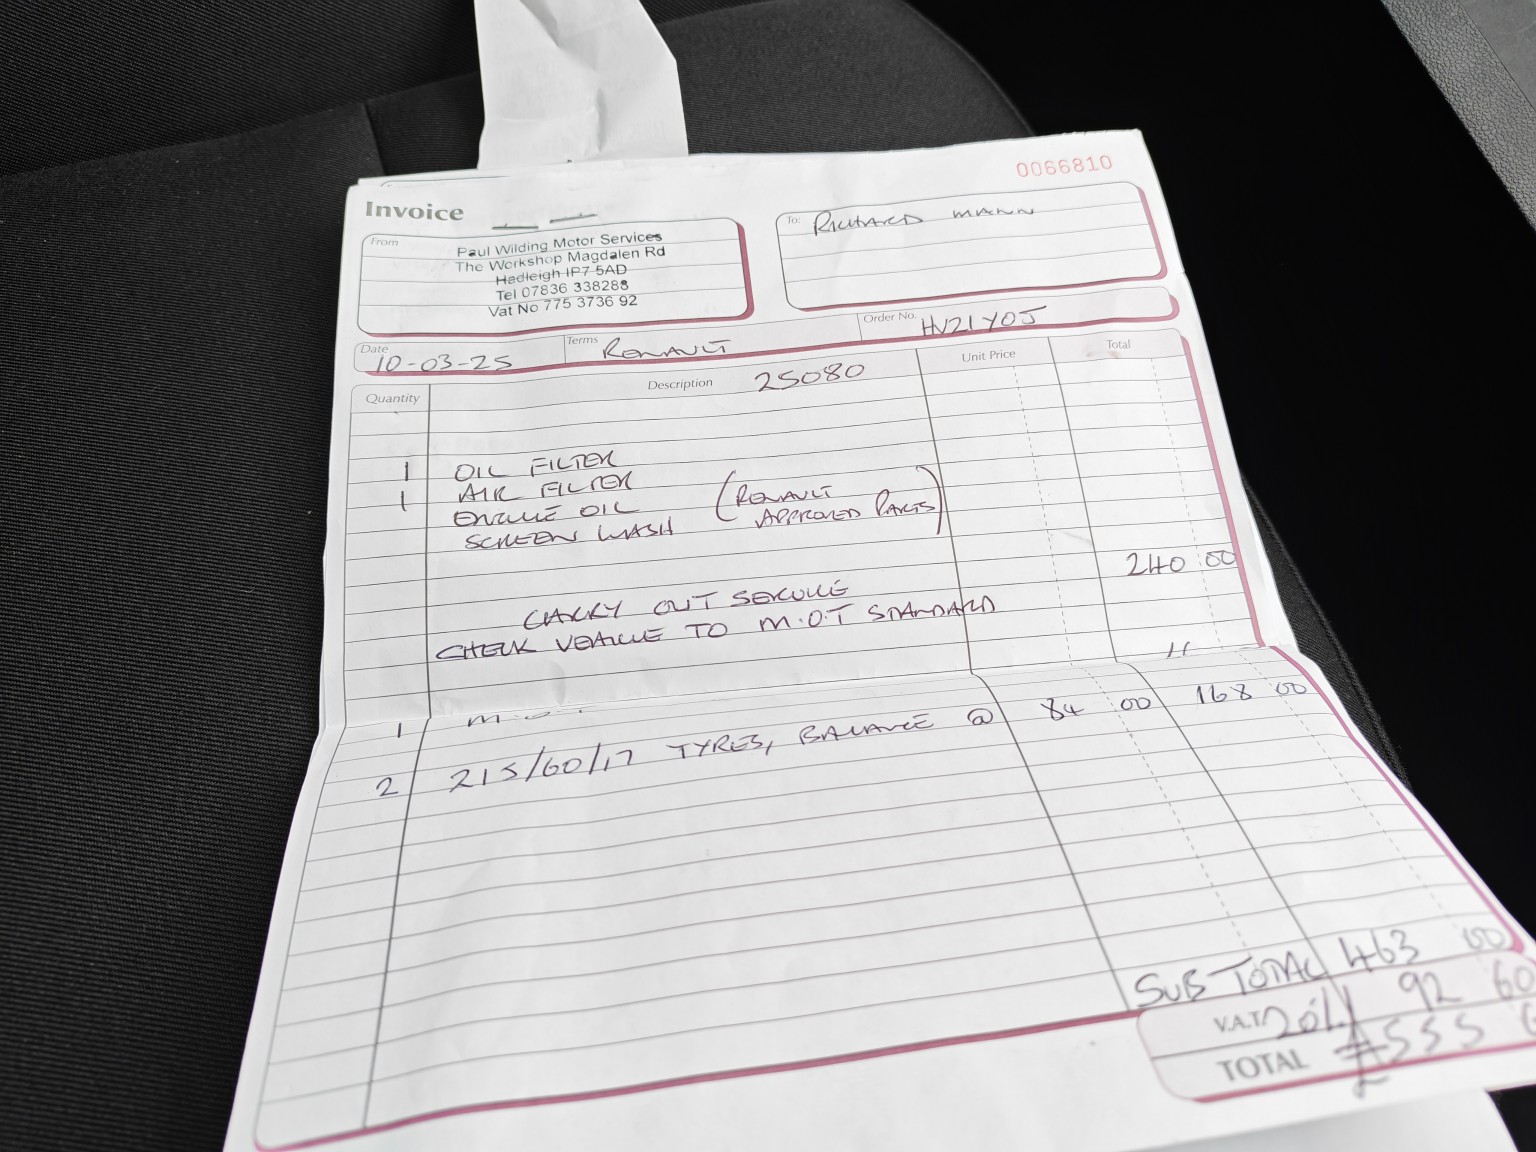 0066810
Invoice
From
Paul Wilding Motor Services
The Workshop Magdalen Rd
Hadleigh IP7 5AD
Tel 07836 338288
Vat No 775 3736 92
To: RICHARD MANN
Date 10-03-25
Terms RENAULT
Order No. HV21YOJ
Quantity
Description 25080
Unit Price
Total
1 OIL FILTER
1 AIR FILTER
ENGINE OIL
SCREEN WASH
(RENAULT
APPROVED PARTS)
240 00
CARRY OUT SERVICE
CHECK VEHICLE TO M.O.T STANDARD
1
2 215/60/17 TYRES, BALANCE @ 84 00 168 00
SUB TOTAL 463 00
V.A.T. 20% 92 60
TOTAL £555